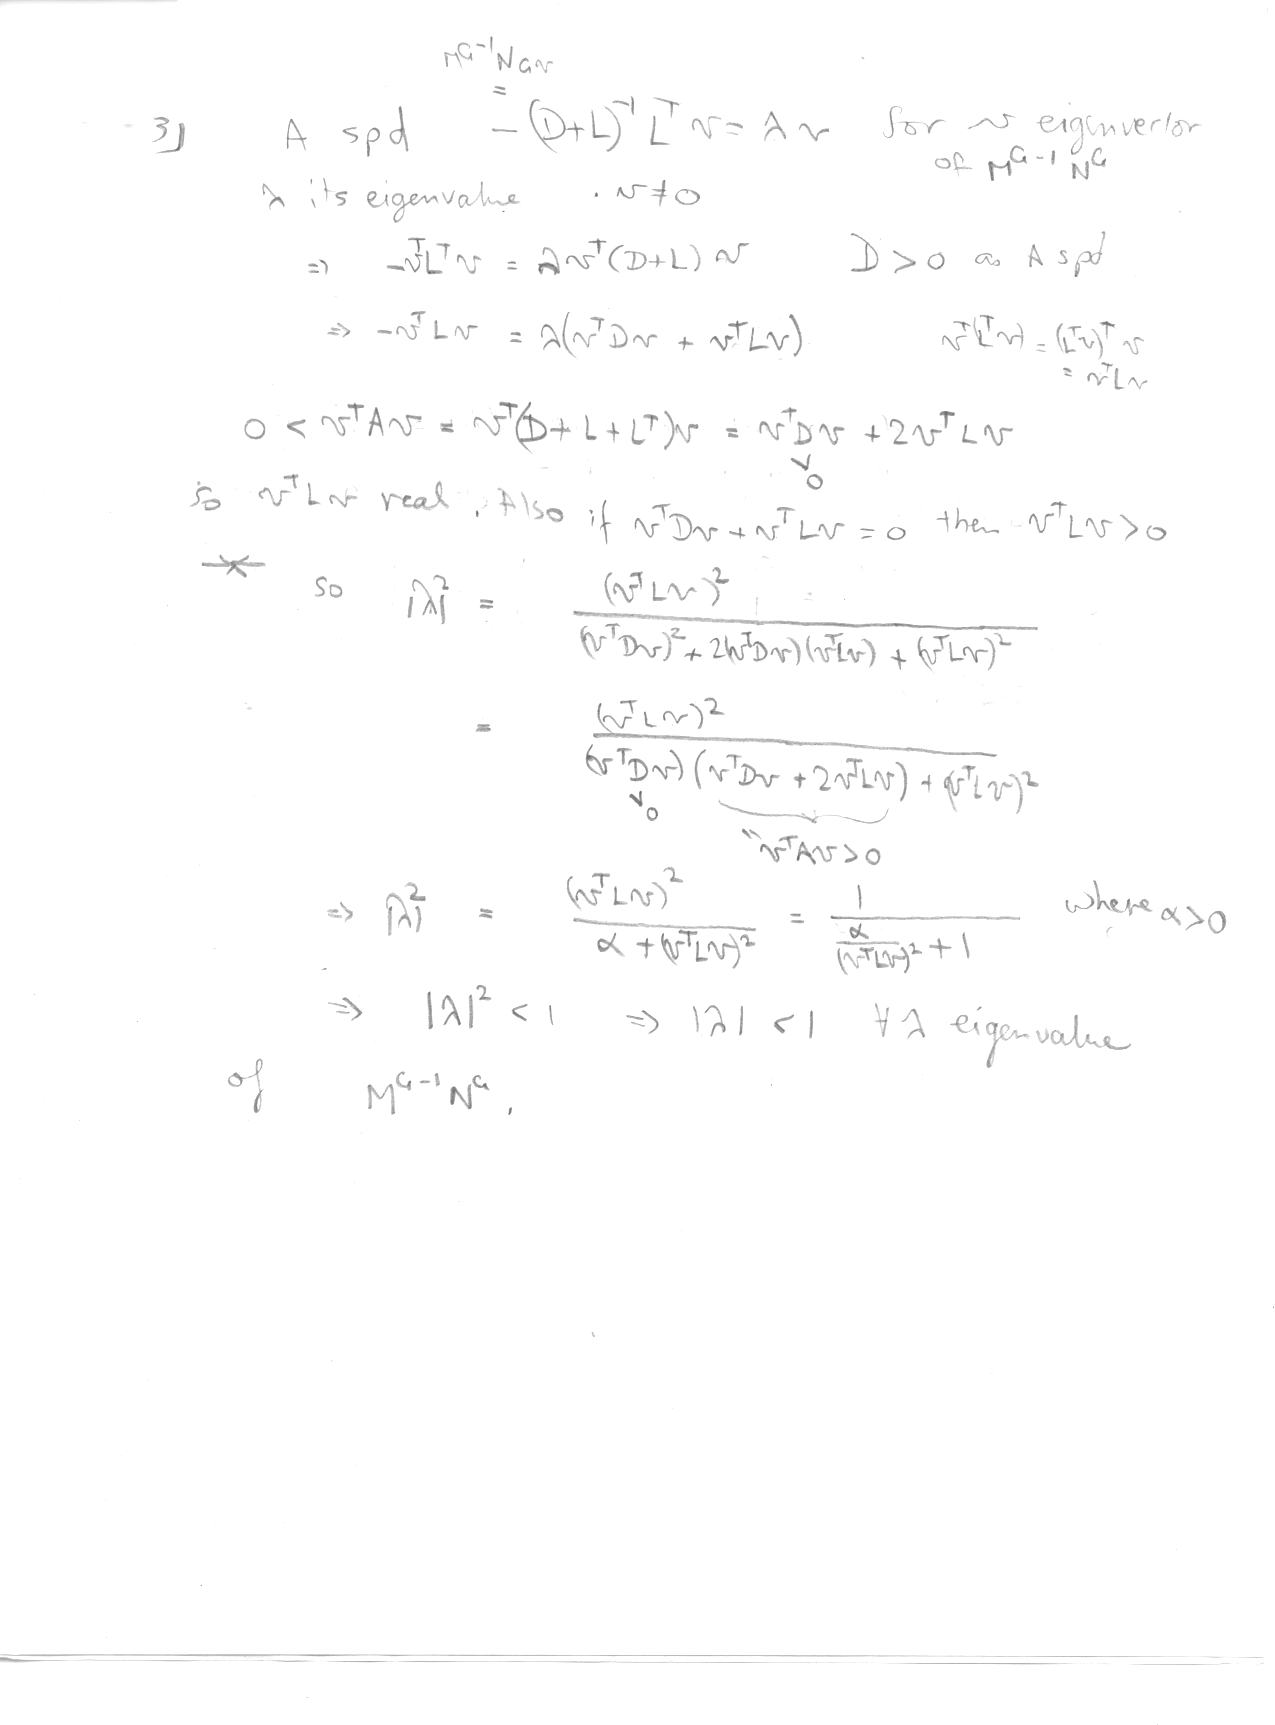 M^{G-1}N^G v
=
3) A spd −(D+L)^{-1} L^T v = λ v for v eigenvector
of M^{G-1} N^G
λ its eigenvalue . v ≠ 0
⇒ −v^T L^T v = λ v^T (D+L) v D > 0 as A spd
⇒ −v^T L v = λ(v^T D v + v^T L v) v^T(L^T v) = (L^T v)^T v
= v^T L v
0 < v^T A v = v^T(D + L + L^T)v = v^T D v + 2 v^T L v
v
0
so v^T L v real. Also if v^T D v + v^T L v = 0 then v^T L v > 0
so |λ|^2 = (v^T L v)^2 / ((v^T D v)^2 + 2(v^T D v)(v^T L v) + (v^T L v)^2)
= (v^T L v)^2 / ((v^T D v)(v^T D v + 2 v^T L v) + (v^T L v)^2)
v
0
" v^T A v > 0
⇒ |λ|^2 = (v^T L v)^2 / (α + (v^T L v)^2) = 1 / (α/(v^T L v)^2 + 1) where α > 0
⇒ |λ|^2 < 1 ⇒ |λ| < 1 ∀ λ eigenvalue
of M^{G-1} N^G.